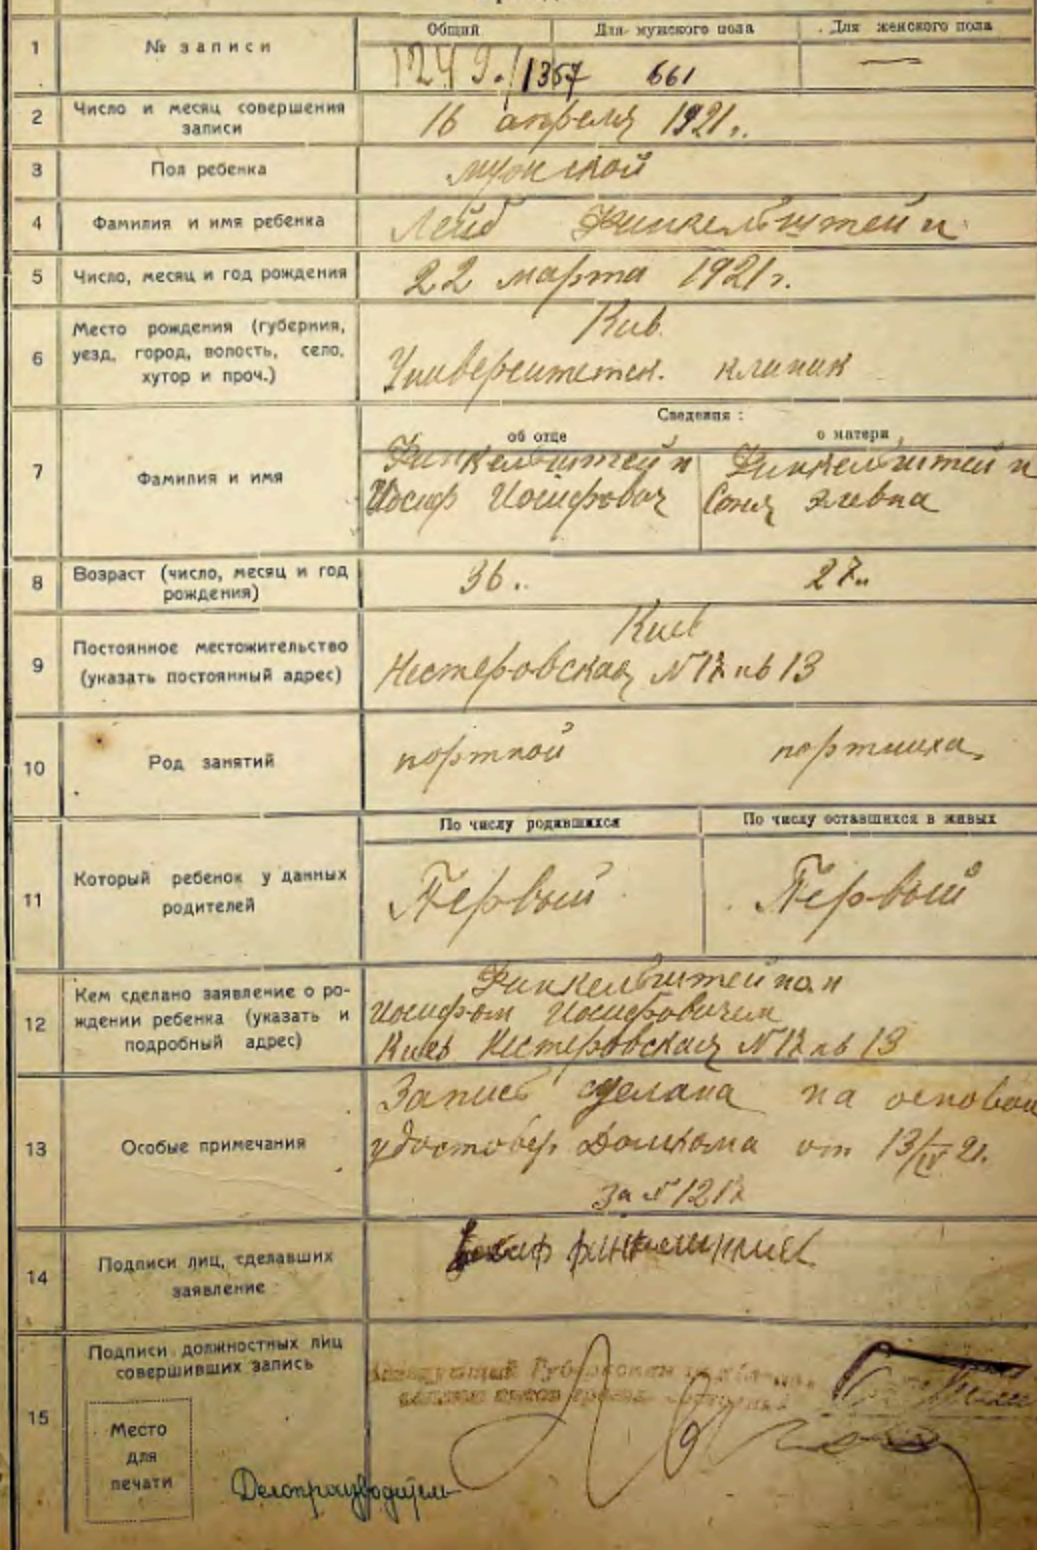 1
№ записи
Общий
Для мужского пола
Для женского пола
1249./1357
661
—
2
Число и месяц совершения
записи
16 апреля 1921 г.
3
Пол ребенка
мужской
4
Фамилия и имя ребенка
Лейб Финкельштейн
5
Число, месяц и год рождения
22 марта 1921 г.
6
Место рождения (губерния,
уезд, город, волость, село,
хутор и проч.)
Киев
Университетск. клиник
7
Фамилия и имя
Сведения :
об отце
о матери
Финкельштейн
Иосиф Иосифович
Финкельштейн
Соня Элевна
8
Возраст (число, месяц и год
рождения)
36..
27..
9
Постоянное местожительство
(указать постоянный адрес)
Киев
Нестеровская № 17 кв 13
10
Род занятий
портной
портниха
11
Который ребенок у данных
родителей
По числу родившихся
По числу оставшихся в живых
Первый
Первый
12
Кем сделано заявление о ро-
ждении ребенка (указать и
подробный адрес)
Иосифом Иосифовичем
Киев Нестеровская № 17 кв 13
13
Особые примечания
Запись сделана на основан
удостовер. Домкома от 13/IV 21.
за № 1217
14
Подписи лиц, сделавших
заявление
15
Подписи должностных лиц
совершивших запись
Место
для
печати
Заведующий Губернским
Делопроизводитель